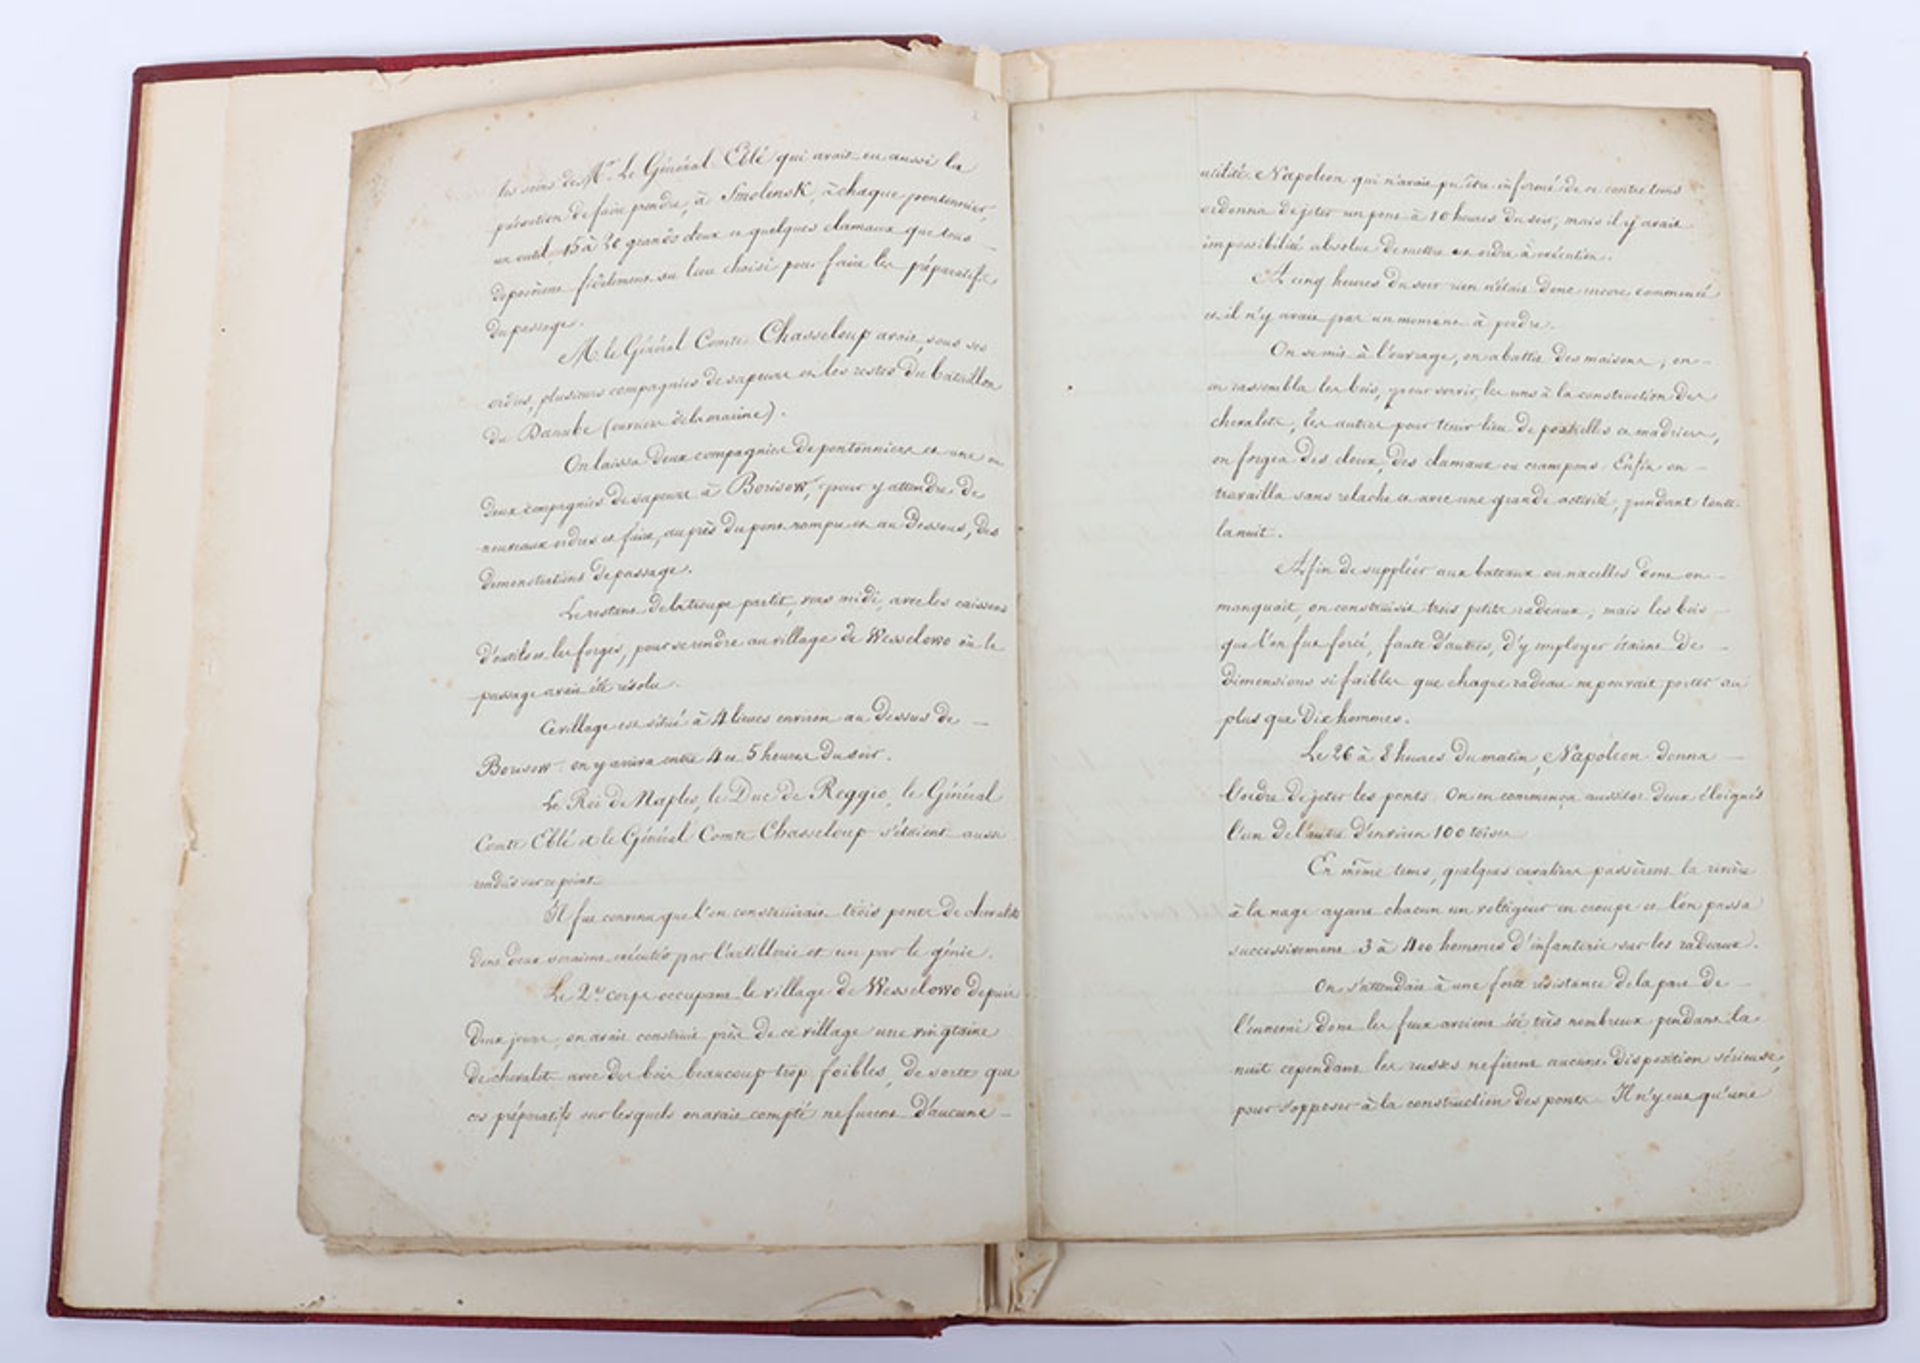 les soins de Mr. Le Général Eblé qui avait eu aussi la
précaution de faire prendre, à Smolensk, à chaque pontonnier,
un outil, 15 à 20 grands cloux et quelques clamaux que tous
déposèrent fidèlement au lieu choisi pour faire les préparatifs
du passage.
M. le Général Comte Chasseloup avait, sous ses
ordres, plusieurs compagnies de sapeurs et les restes du bataillon
du Danube (ouvriers de la marine).
On laissa deux compagnies de pontonniers et une ou
deux compagnies de sapeurs à Borisow, pour y attendre de
nouveaux ordres et faire, auprès du pont rompu et au dessous, des
démonstrations de passage.
Le restant de la troupe partit, vers midi, avec les caissons
d'outils et les forges, pour se rendre au village de Wesselowo où le
passage avait été résolu.
Ce village est situé à 4 lieues environ au dessus de
Borisow. on y arriva entre 4 et 5 heures du soir.
Le Roi de Naples, le Duc de Reggio, le Général
Comte Eblé et le Général Comte Chasseloup s'étaient aussi
rendus sur ce point.
Il fut convenu que l'on construirait trois ponts de chevalets
dont deux seraient exécutés par l'artillerie et un par le génie.
Le 2e corps occupant le village de Wesselowo depuis
deux jours, on avait construit près de ce village une vingtaine
de chevalets avec des bois beaucoup trop foibles, de sorte que
ces préparatifs sur lesquels on avait compté ne furent d'aucune
utilité. Napoleon qui n'avait pu être informé de ce contre tems
ordonna de jeter un pont à 10 heures du soir, mais il y avait
impossibilité absolue de mettre cet ordre à exécution.
A cinq heures du soir rien n'était donc encore commencé
et il n'y avait pas un moment à perdre.
On se mit à l'ouvrage, on abattit des maisons, on
en rassembla les bois, pour servir, les uns à la construction des
chevalets, les autres pour tenir lieu de poutrelles et madriers,
on forgea des cloux, des clamaux ou crampons. Enfin on
travailla sans relache et avec une grande activité, pendant toute
la nuit.
Afin de suppléer aux bateaux ou nacelles dont on
manquait, on construisit trois petits radeaux; mais les bois
que l'on fut forcé, faute d'autres, d'y employer étaient de
dimensions si faibles que chaque radeau ne pouvait porter au
plus que dix hommes.
Le 26 à 8 heures du matin, Napoléon donna
l'ordre de jeter les ponts. On en commença aussitot deux éloignés
l'un de l'autre d'environ 100 toises
En même tems, quelques cavaliers passèrent la rivière
à la nage ayant chacun un voltigeur en croupe et l'on passa
successivement 3 à 400 hommes d'infanterie sur les radeaux.
On s'attendait à une forte résistance de la part de
l'ennemi dont les feux avaient été très nombreux pendant la
nuit cependant les russes ne firent aucune disposition sérieuse,
pour s'opposer à la construction des ponts. Il n'y eut qu'une